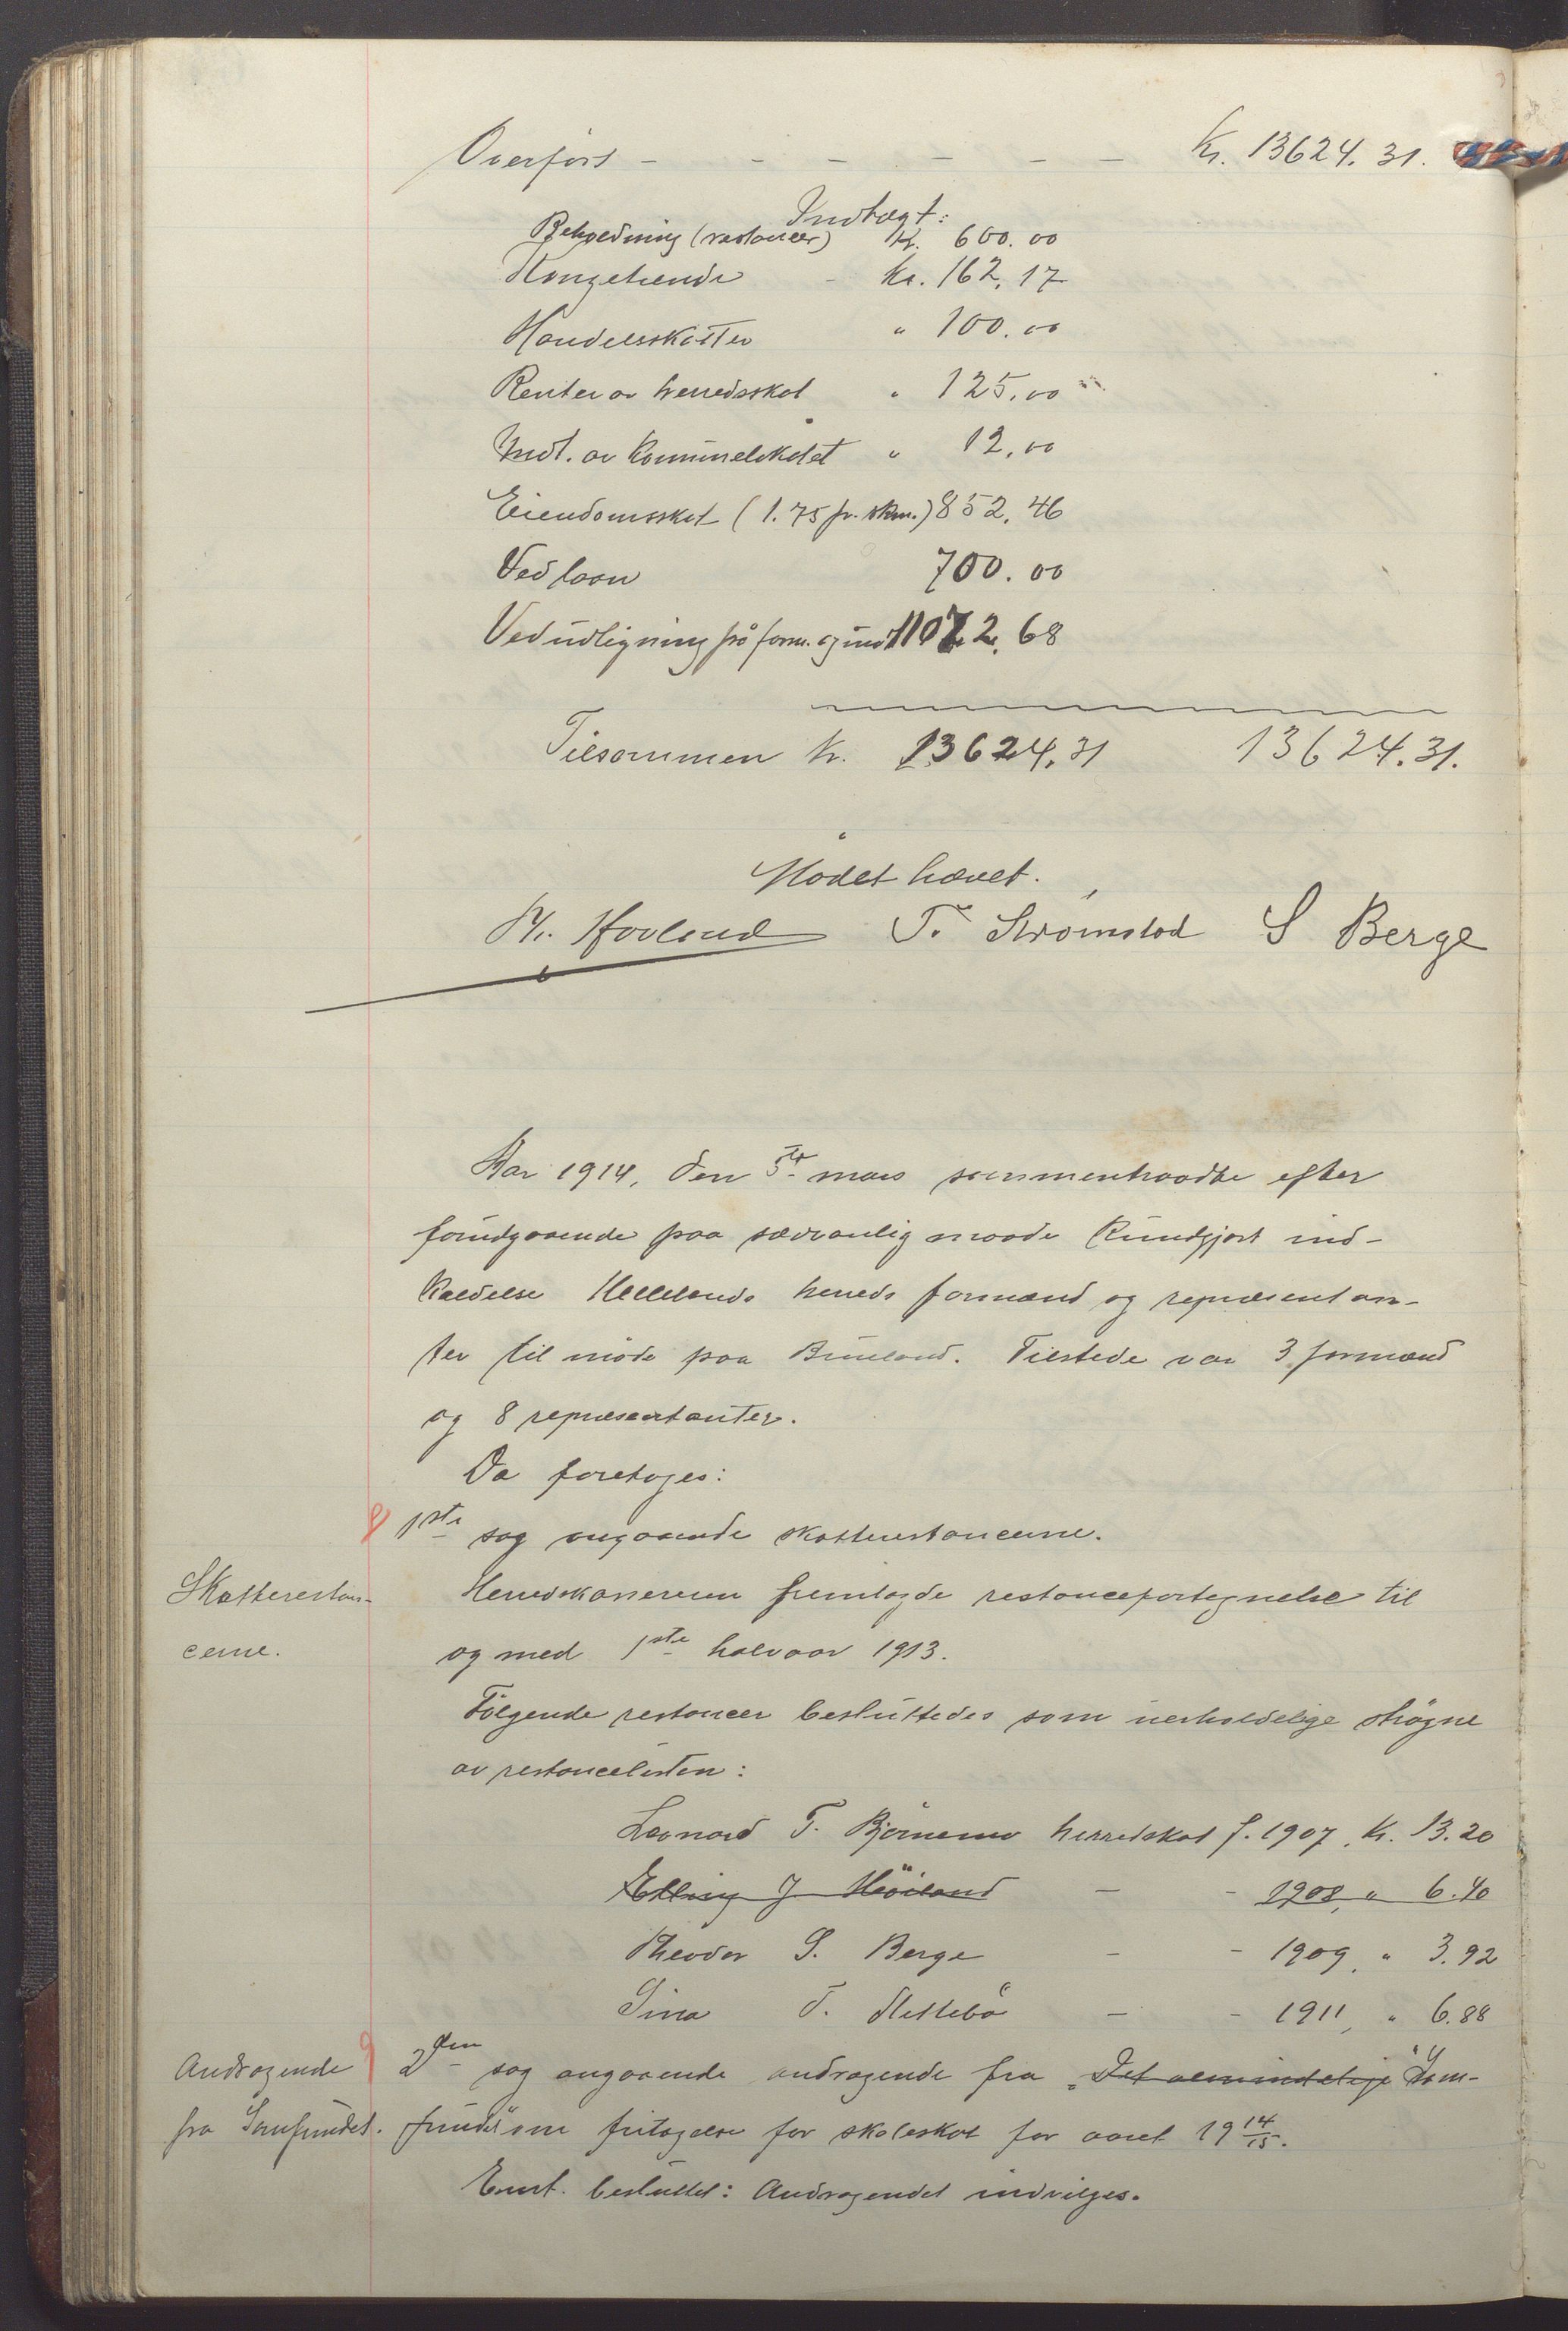 Overført - - - - - - Kr. 13624.31.
Indtægt:
Beholdning (restancer) Kr. 600.00
Kongetiende - Kr. 162.17
Handelsskatter " 100.00
Renter av herredsskat " 125.00
Indt. av kommunelokalet " 12.00
Eiendomsskat (1.75 pr. skm.) 852.46
Ved laan 700.00
Ved udligning på form. og indt. 11072.68
Tilsammen Kr. 13624.31 13624.31.
Mødet hævet.
Hovland T. Strømstad S Berge
Aar 1914, den 5te mars sammentraadte efter
forudgaaende paa sædvanlig maade kundgjort ind-
kaldelse Hellelands herreds formænd og repræsentan-
ter til møde paa Birkeland. Tilstede var 3 formænd
og 8 repræsentanter.
Da foretoges:
1ste sag angaaende skatterestancerne.
Skatterestan-
cerne.
Herredskassereren fremlagde restancefortegnelse til
og med 1ste halvaar 1913.
Følgende restancer besluttedes som uerholdelige strøgne
av restancelisten:
Leonard T. Bjørnemo herredskat f. 1907, Kr. 13.20
Elling J Høiland - - 1908, " 6.40
Theodor S. Berge - - 1909, " 3.92
Sina T. Slettebø - - 1911, " 6.88
Andragende
fra Samfundet.
2den sag angaaende andragende fra "Det almindelige Sam-
fund" om fritagelse for skoleskat for aaret 19 14/15.
Enst. besluttet: Andragendet indvilges.